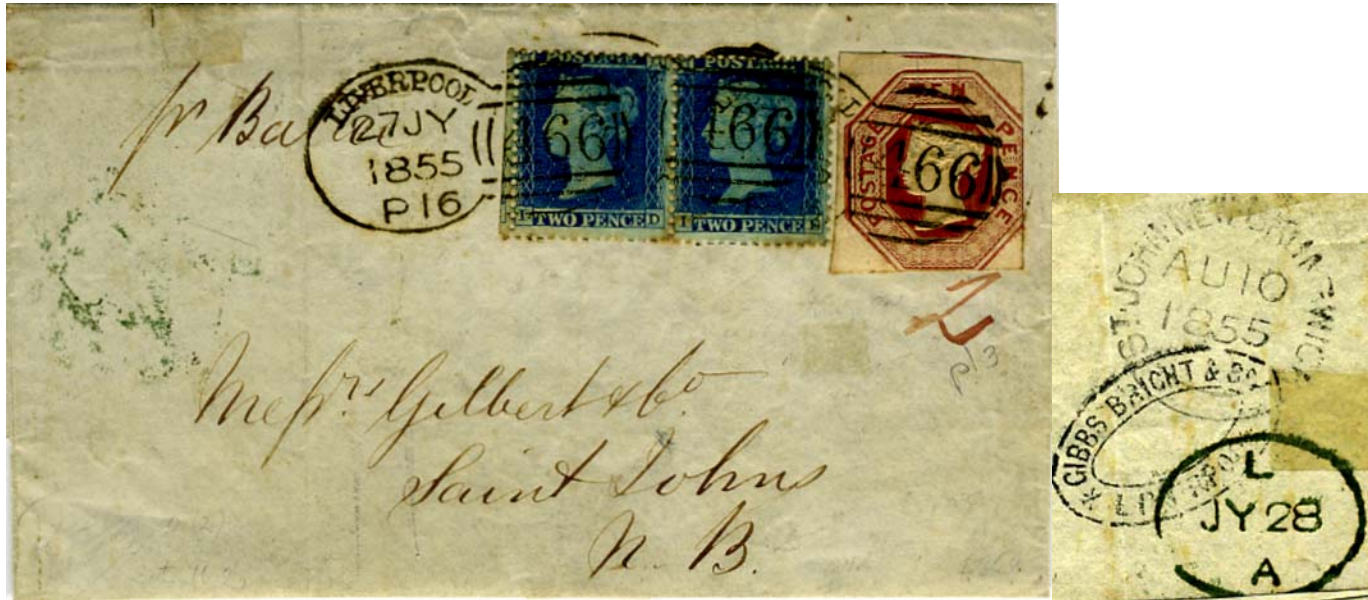 pr
LIVERPOOL
27 JY
1855
P16
466
466
466
POSTAGE
TWO PENCE
I D
POSTAGE
TWO PENCE
I E
POSTAGE TEN PENCE
p/3
Messrs. Gilbert & Co.
Saint Johns
N. B.
ST. JOHN NEW BRUNSWICK
AU 10
1855
* GIBBS BRIGHT & Co
LIVERPOOL
L
JY 28
A